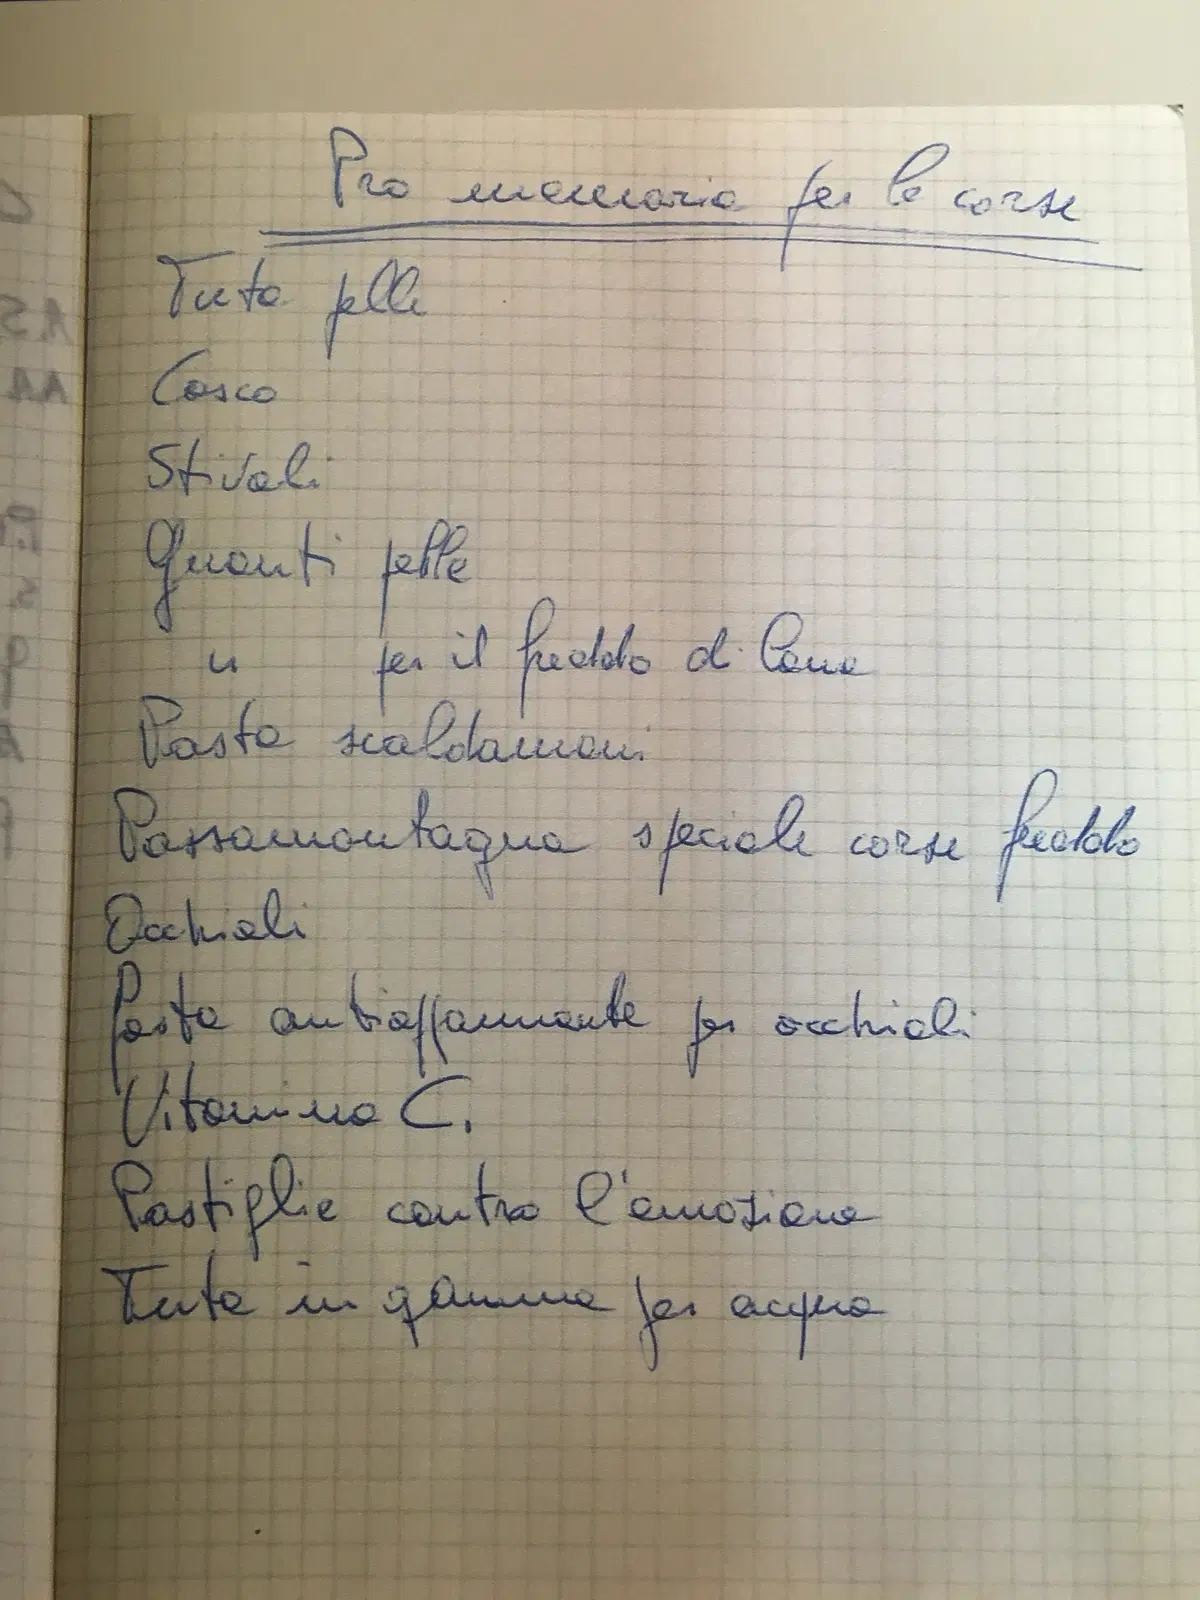 Pro memoria per le corse
Tuta pelle
Casco
Stivali
Guanti pelle
" per il freddo di lana
Pasta scaldamani
Passamontagna speciale corse freddo
Occhiali
Pasta antiappannante per occhiali
Vitamina C.
Pastiglie contro l'emozione
Tuta in gomma per acqua